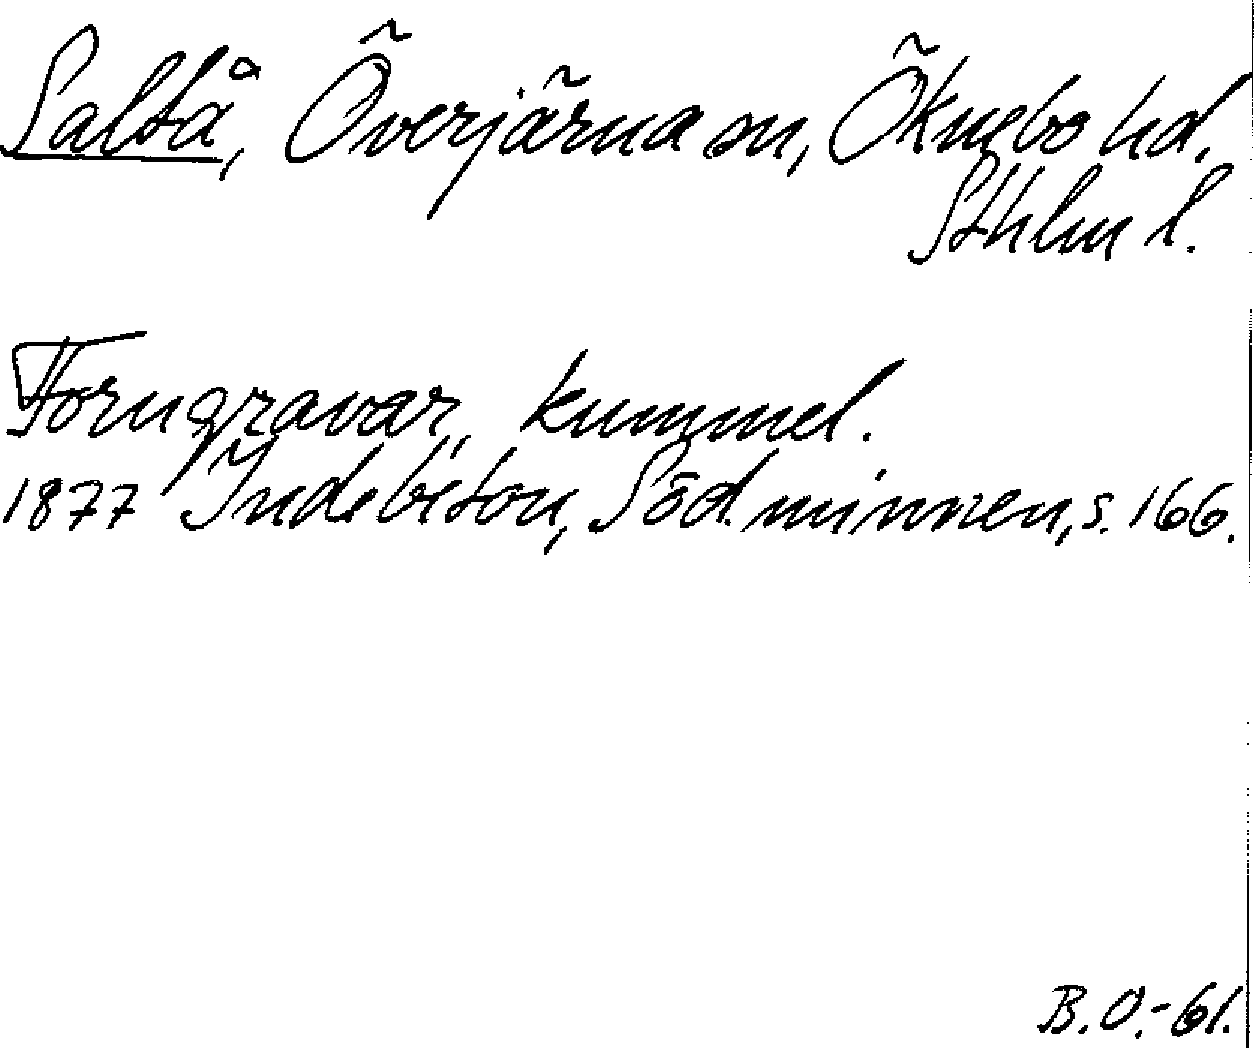 Saltå, Överjärna sn, Öknebo hd.
Sthlm l.
Forngravar, kummel.
1877 Indebetou, Söd. minnen, s. 166.
B.O.-61.